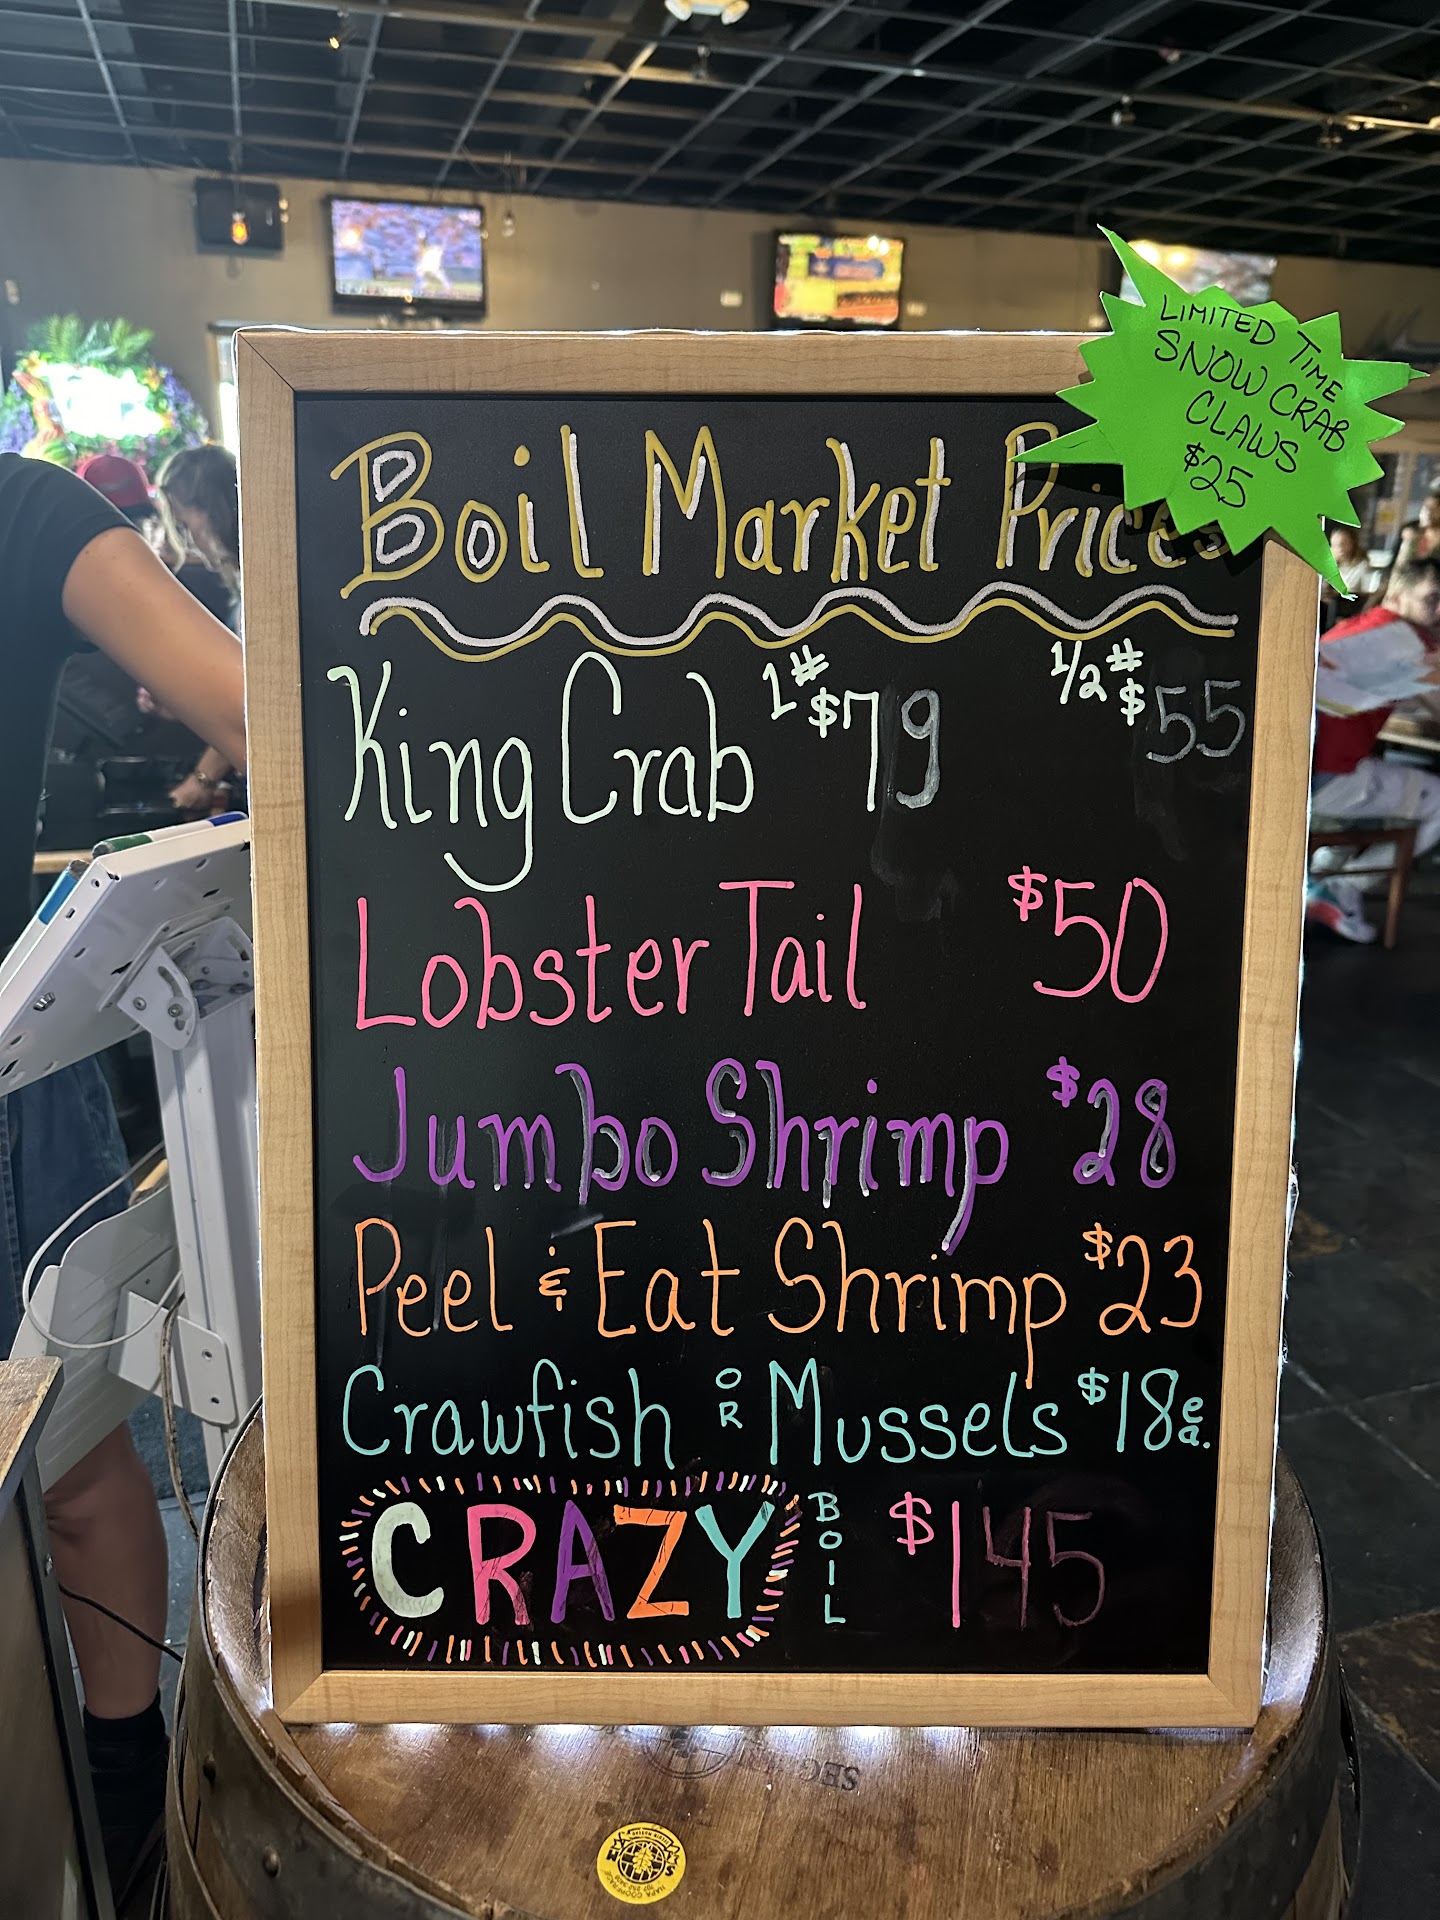 LIMITED TIME
SNOW CRAB
CLAWS
$25
Boil Market Prices
King Crab 1# $79 1/2# $55
Lobster Tail $50
Jumbo Shrimp $28
Peel & Eat Shrimp $23
Crawfish OR Mussels $18 ea.
CRAZY BOIL $145